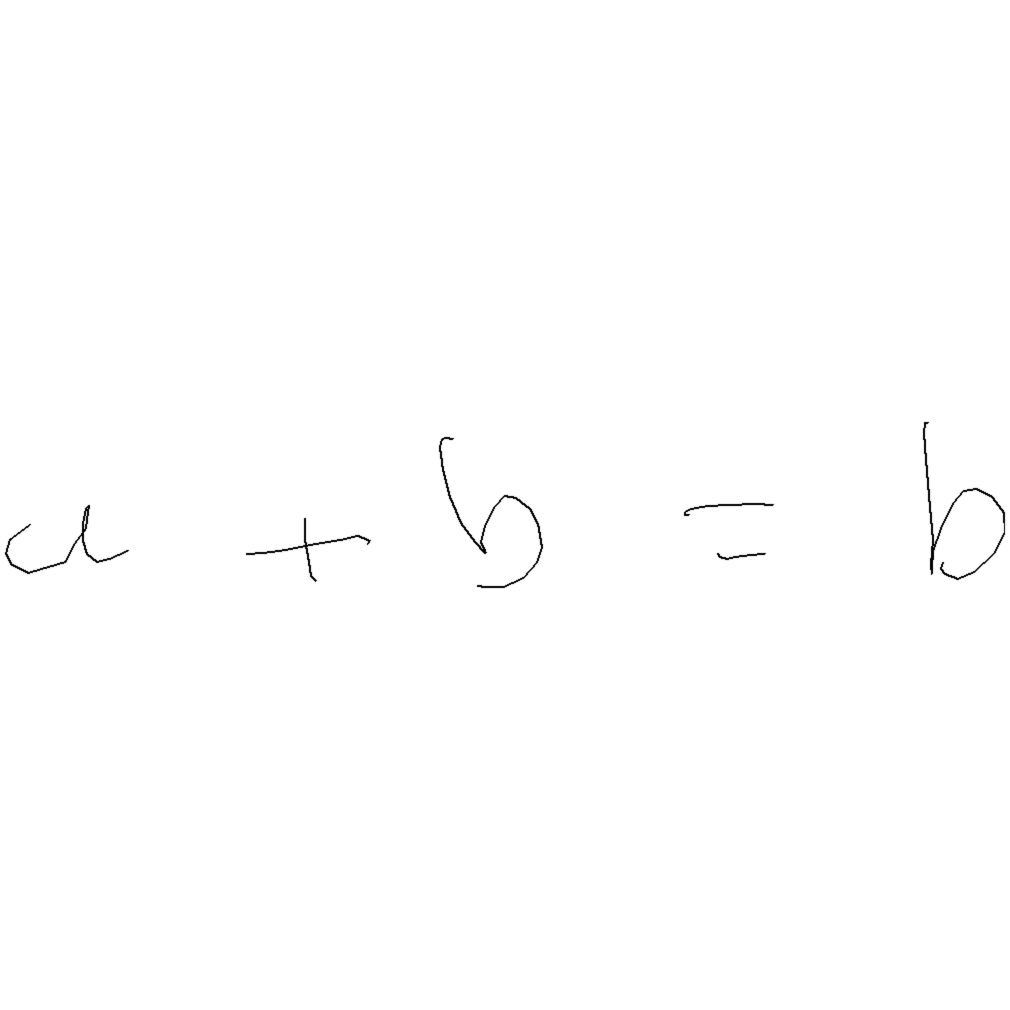 a + b = b